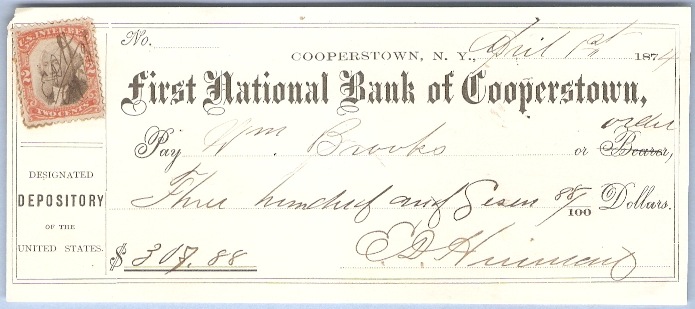 U.S. INTER. REV.
2 2
TWO CENTS
No.
COOPERSTOWN, N. Y., April 1st 1874
First National Bank of Cooperstown,
Pay Wm. Brooks or Bearer, order
Three hundred and Seven 88/100 Dollars.
$ 307.88
DESIGNATED
DEPOSITORY
OF THE
UNITED STATES.